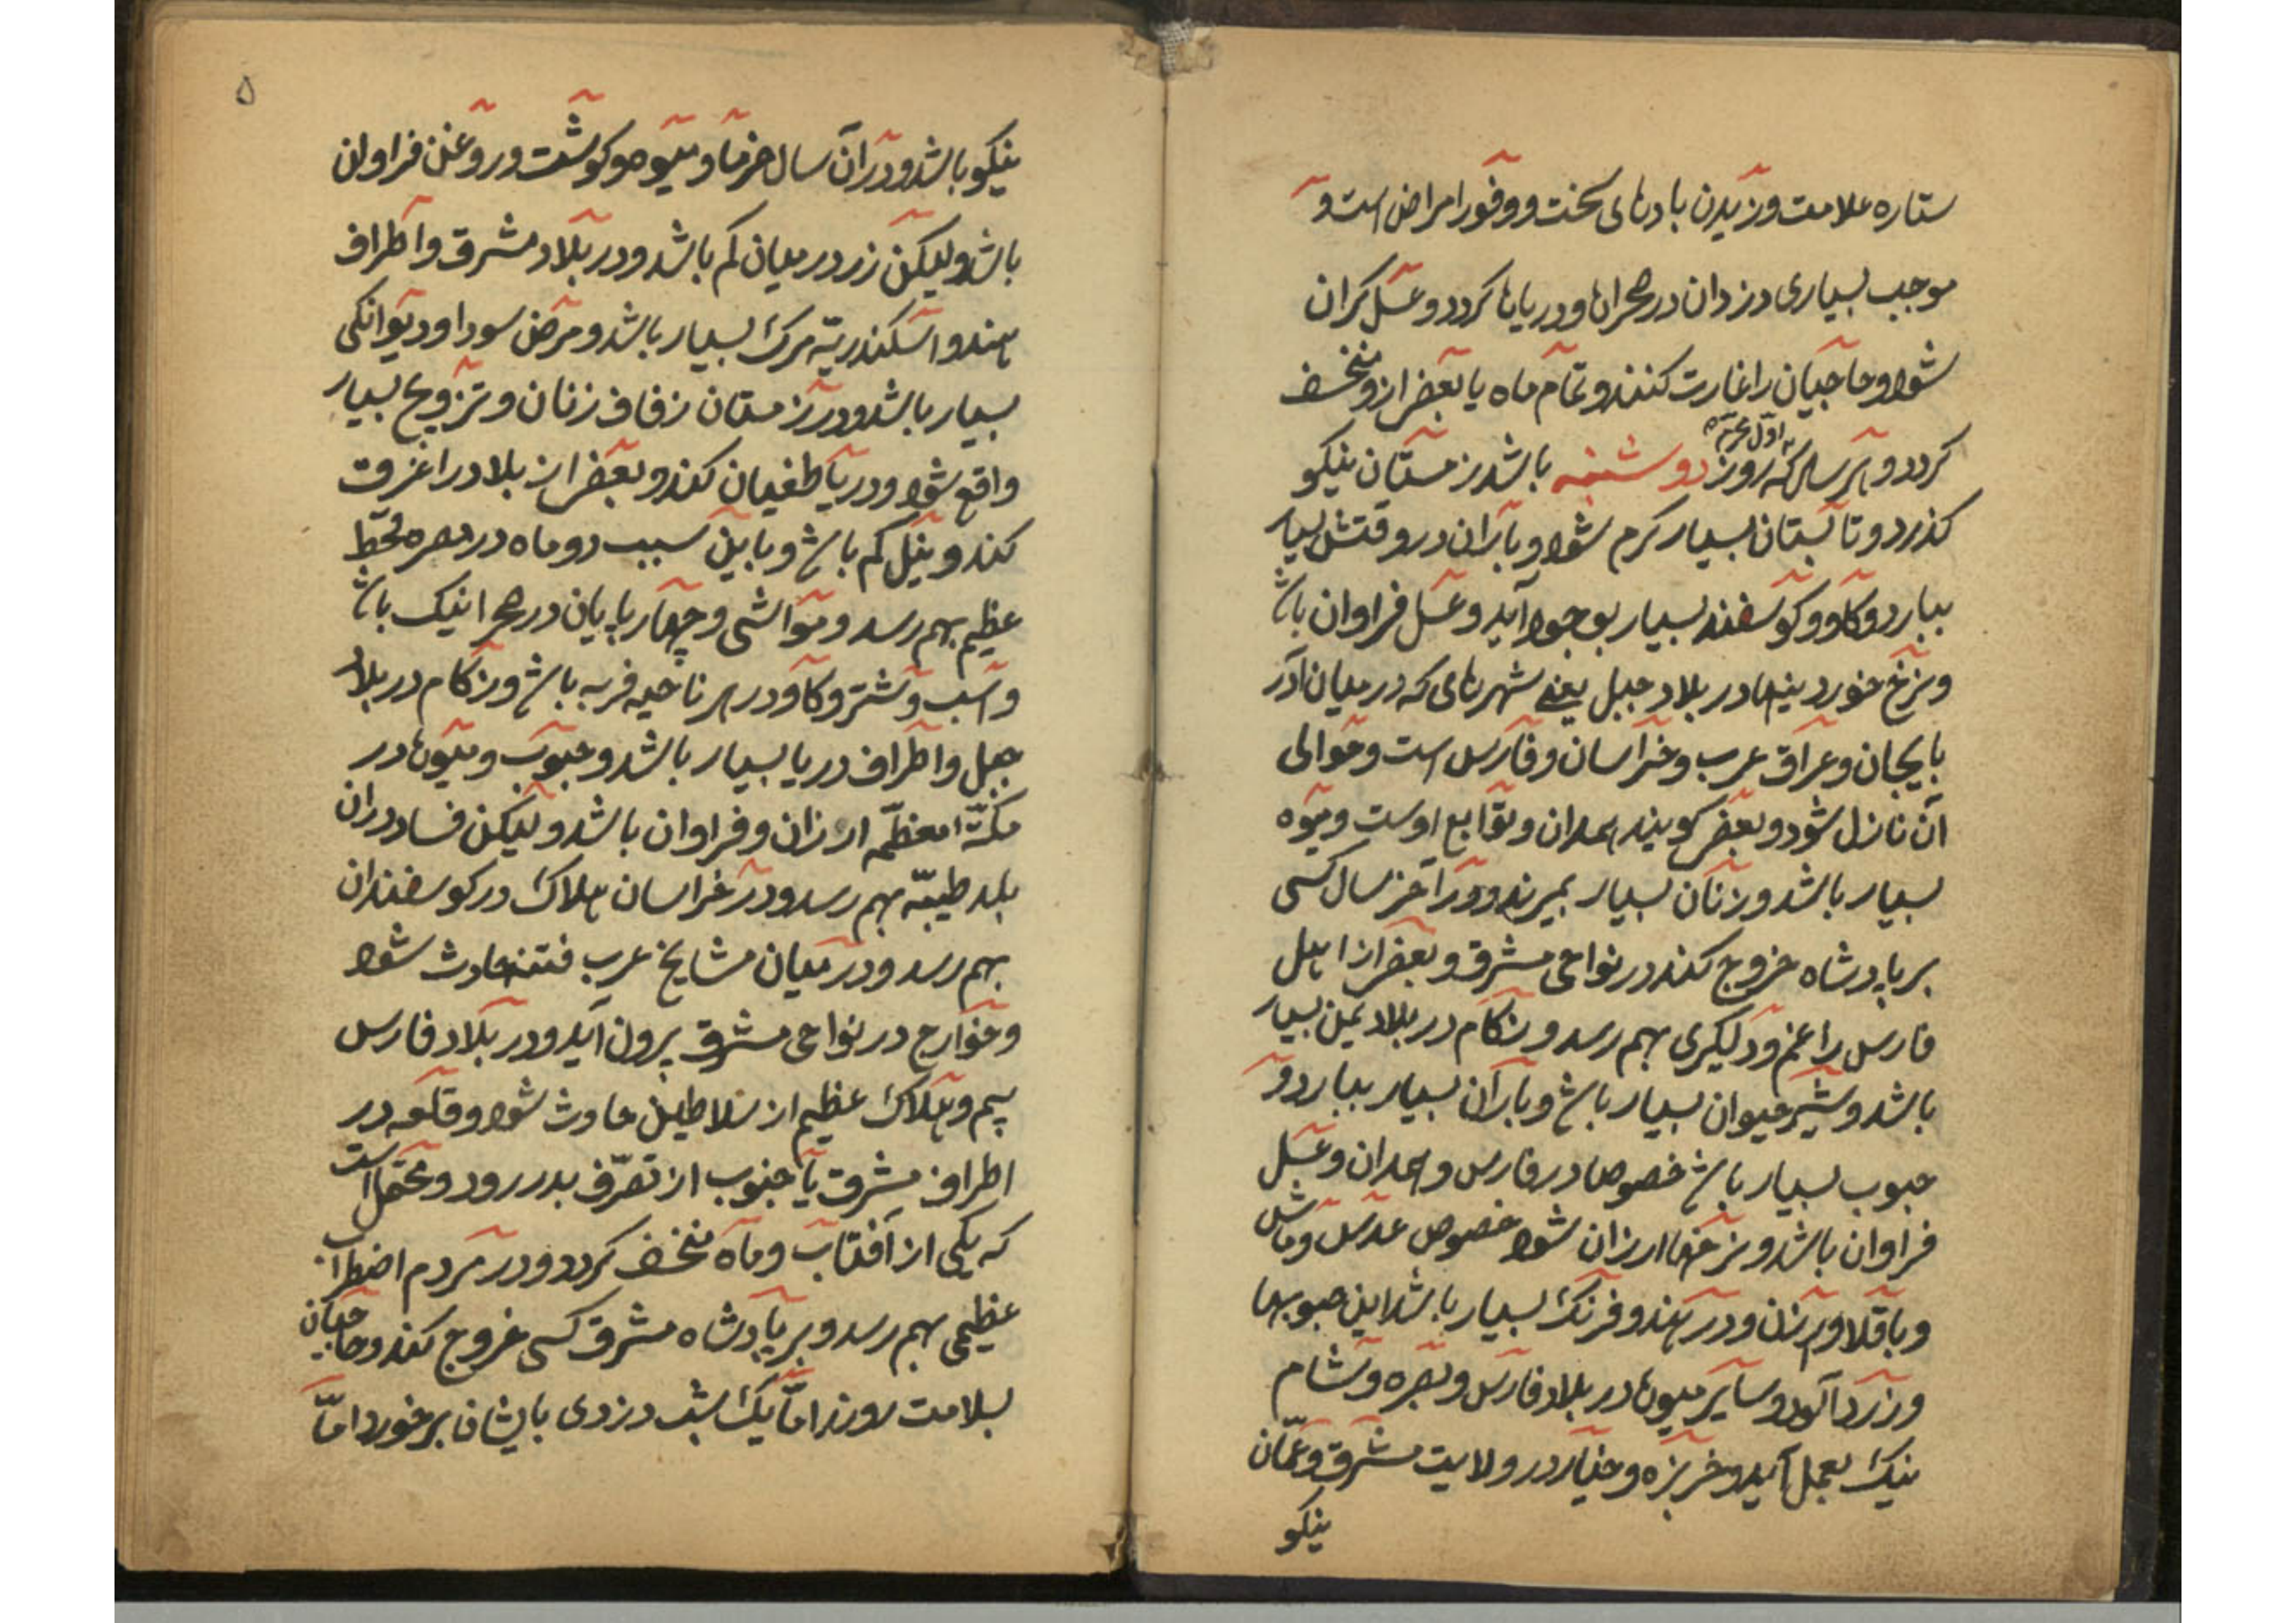 ستاره علامت وزیدن بادهای سخت و وفور امراض است و
موجب بسیاری دزدان در صحراها و دریاها کردد و عسل کران
شود و حاجیان را غارت کنند و تمام ماه یا بعضی از و منخسف
کردد و هر سال که روز اول محرم دوشنبه باشد زمستان نیکو
کذرد و تابستان بسیار کرم شود و باران در وقتش بسیار
ببارد و کاو و کوسفند بسیار بوجود آید و عسل فراوان باشد
و نرخ خوردنیها در بلاد جبل یعنی شهرهای که در میان آذر
بایجان و عراق عرب و خراسان و فارس است و حوالی
آن نازل شود و بعضی کویند همدان و توابع اوست و میوه
بسیار باشد و زنان بسیار بمیرند و در آخر سال کسی
بر پادشاه خروج کند در نواحی مشرق و بعضی از اهل
فارس را غم و دلکیری بهم رسد و زکام در بلاد یمن بسیار
باشد و شیر حیوان بسیار باشد و باران بسیار ببارد و
حبوب بسیار باشد خصوصا در فارس و همدان و عسل
فراوان باشد و نرخها ارزان شود خصوص عدس و ماش
و باقلا و برزن و در هند و فرنک بسیار باشد این حبوبها
و زردآلود و سایر میوها در بلاد فارس و بصره و شام
نیک بعمل آید و خربزه و خیار در ولایت مشرق و عمّان
نیکو
۵
نیکو باشد و در آن سال خرما و میوه و کوشت و روغن فراوان
باشد و لیکن زر در میان کم باشد و در بلاد مشرق و اطراف
هند و اسکندریّه مرک بسیار باشد و مرض سودا و دیوانکی
بسیار باشد و در زمستان زفاف زنان و تزویج بسیار
واقع شود و دریا طغیان کند و بعضی از بلاد را غرق
کند و نیل کم باشد و باین سبب دو ماه در مصر قحط
عظیم بهم رسد و مواشی و چهارپایان در صحرا نیک باشد
و اسب و شتر و کاو در هر ناحیه فربه باشد و زکام در بلاد
جبل و اطراف دریا بسیار باشد و حبوب و میوها در
مکّۀ معظّمه ارزان و فراوان باشد و لیکن فساد در ان
بلد طیبّه بهم رسد و در خراسان هلاک در کوسفندان
بهم رسد و در میان مشایخ عرب فتنه حادث شود
و خوارج در نواحی مشرق برون آید و در بلاد فارس
بیم و هلاک عظیم از سلاطین حادث شود و قلعه در
اطراف مشرق یا جنوب از تصرّف بدر رود و محتمل است
که یکی از آفتاب و ماه منخسف کردد و در مردم اضطراب
عظیمی بهم رسد و بر پادشاه مشرق کسی خروج کند و حاجیان
بسلامت روند امّا یک شب دزدی بایشان برخورد امّا